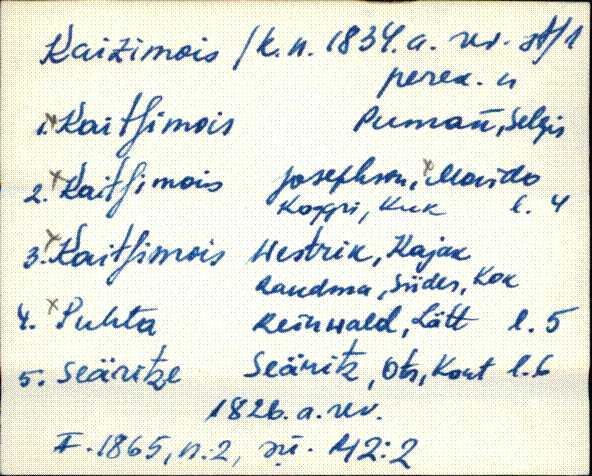 Kaitzimois /k.n. 1834. a. rev. lk/1
perek. n
1. x Kaitsimois Pumañ, Selgis
2. x Kaitsimois Josephson, x Maido
Koppri, Kuk l. 4
3. x Kaitsimois Westrik, Kajak
Raudma, Süder, Kok
4. x Puhta Reinwald, Lätt l. 5
5. Seäritze Seäritz, Ots, Kout l. 6
1826. a. rev.
F. 1865, n. 2, sü. 142:2